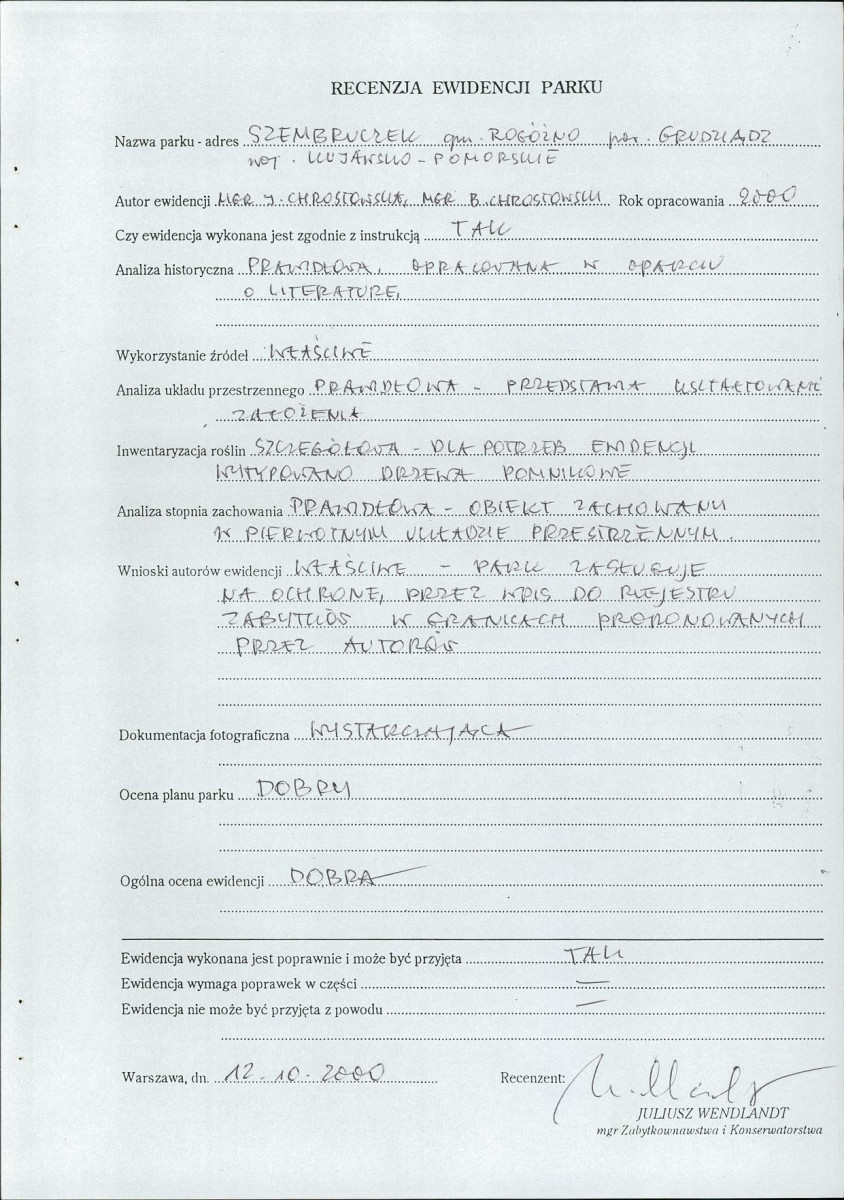 RECENZJA EWIDENCJI PARKU
Nazwa parku - adres SZEMBRUCZEK gm. ROGÓŹNO pow. GRUDZIĄDZ
woj. KUJAWSKO-POMORSKIE
Autor ewidencji MGR J. CHROSTOWSKA, MGR B. CHROSTOWSKI Rok opracowania 2000
Czy ewidencja wykonana jest zgodnie z instrukcją TAK
Analiza historyczna PRAWIDŁOWA, OPRACOWANA W OPARCIU
O LITERATURĘ,
Wykorzystanie źródeł WŁAŚCIWE
Analiza układu przestrzennego PRAWIDŁOWA - PRZEDSTAWIA UKSZTAŁTOWANIE
ZAŁOŻENIA
Inwentaryzacja roślin SZCZEGÓŁOWA - DLA POTRZEB EWIDENCJI
WYTYPOWANO DRZEWA POMNIKOWE
Analiza stopnia zachowania PRAWIDŁOWA - OBIEKT ZACHOWANY
W PIERWOTNYM UKŁADZIE PRZESTRZENNYM.
Wnioski autorów ewidencji WŁAŚCIWE - PARK ZASŁUGUJE
NA OCHRONĘ, PRZEZ WPIS DO REJESTRU
ZABYTKÓW W GRANICACH PROPONOWANYCH
PRZEZ AUTORÓW
Dokumentacja fotograficzna WYSTARCZAJĄCA
Ocena planu parku DOBRY
Ogólna ocena ewidencji DOBRA
Ewidencja wykonana jest poprawnie i może być przyjęta TAK
Ewidencja wymaga poprawek w części —
Ewidencja nie może być przyjęta z powodu —
Warszawa, dn. 12-10-2000 Recenzent:
JULIUSZ WENDLANDT
mgr Zabytkownawstwa i Konserwatorstwa